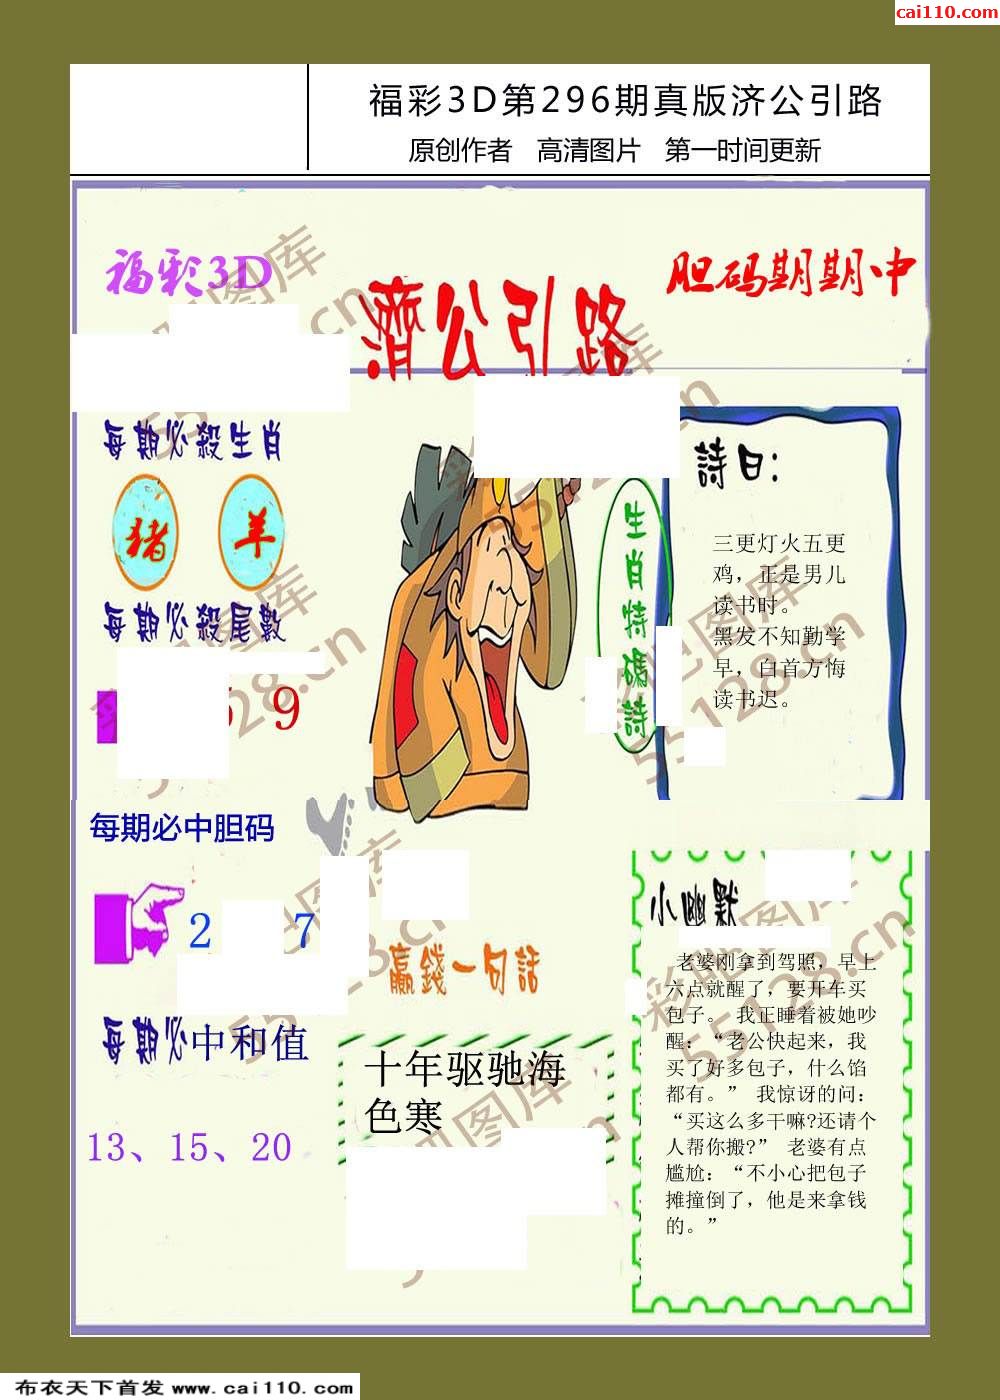 cai110.com
福彩3D第296期真版济公引路
原创作者 高清图片 第一时间更新
福彩3D
胆码期期中
濟公引路
每期必殺生肖
猪 羊
每期必殺尾數
9
每期必中胆码
2 7
每期必中和值
13、15、20
生肖特碼詩
詩曰：
三更灯火五更
鸡，正是男儿
读书时。
黑发不知勤学
早，白首方悔
读书迟。
贏錢一句話
十年驱驰海
色寒
小幽默
老婆刚拿到驾照，早上
六点就醒了，要开车买
包子。 我正睡着被她吵
醒：“老公快起来，我
买了好多包子，什么馅
都有。” 我惊讶的问：
“买这么多干嘛?还请个
人帮你搬?” 老婆有点
尴尬：“不小心把包子
摊撞倒了，他是来拿钱
的。”
彩吧图库
55128.cn
布衣天下首发 www.cai110.com